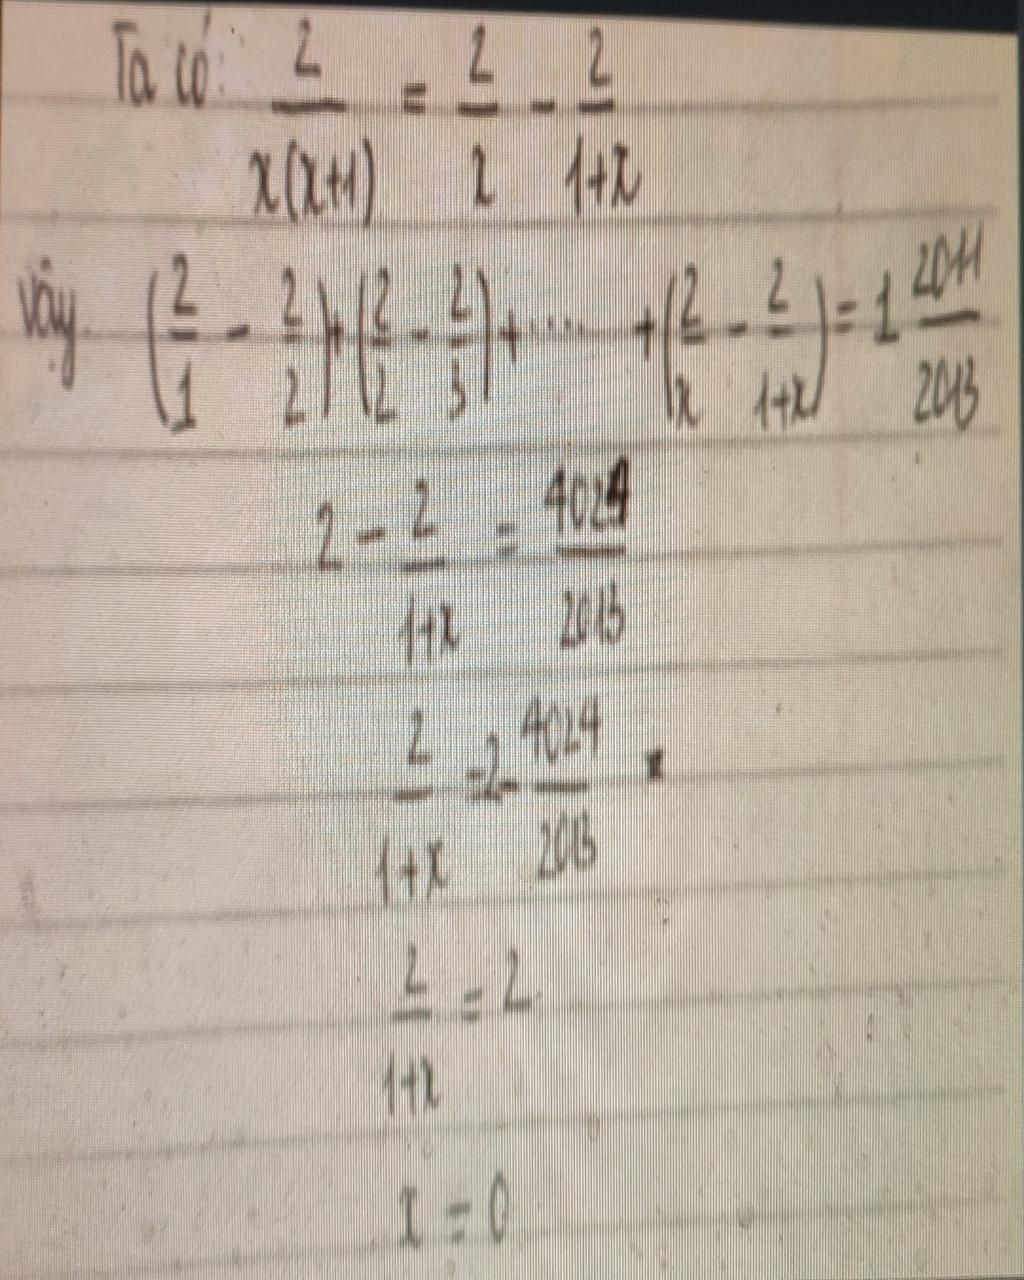 Ta có: 2/(x(x+1)) = 2/x - 2/(1+x)
Vậy (2/1 - 2/2) + (2/2 - 2/3) + .... + (2/x - 2/(1+x)) = 1 2011/2013
2 - 2/(1+x) = 4024/2013
2/(1+x) = 2 - 4024/2013
2/(1+x) = 2
x = 0